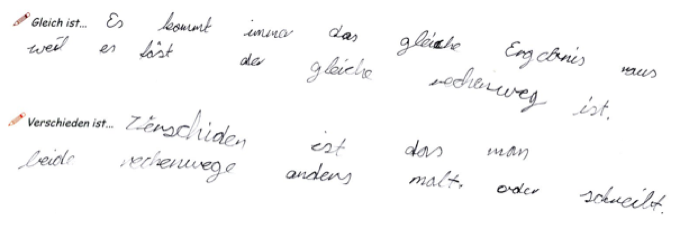 Gleich ist... Es kommt immer das gleiche Ergebnis raus
weil es der gleiche rechenweg ist.
Verschieden ist... Verschiden ist das man
beide rechenwege anders malt. oder schreibt.